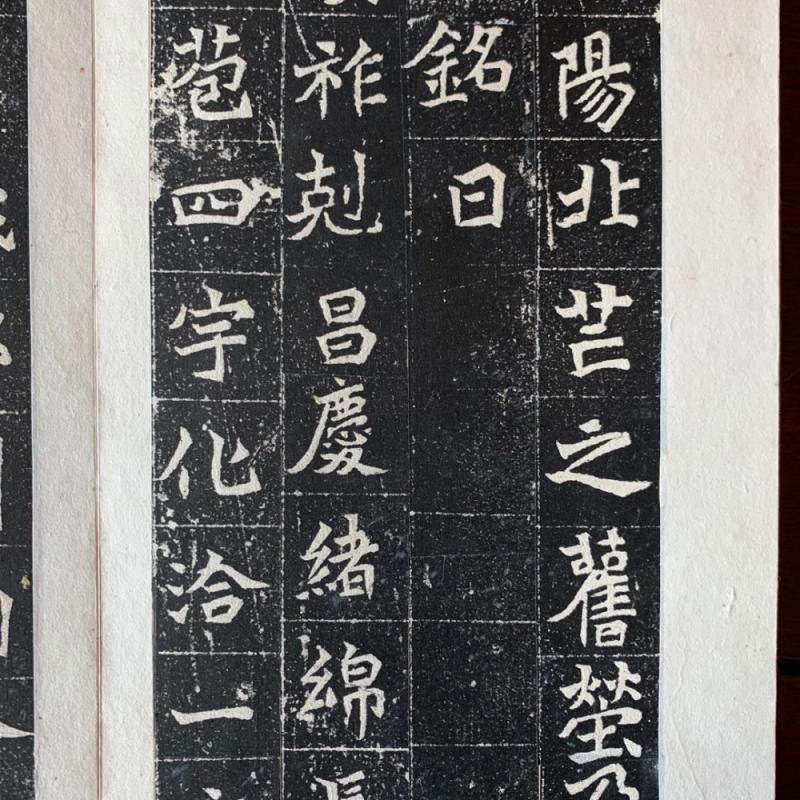 陽北芒之舊塋乃
銘曰
祚剋昌慶緒綿長
苞四宇化洽一